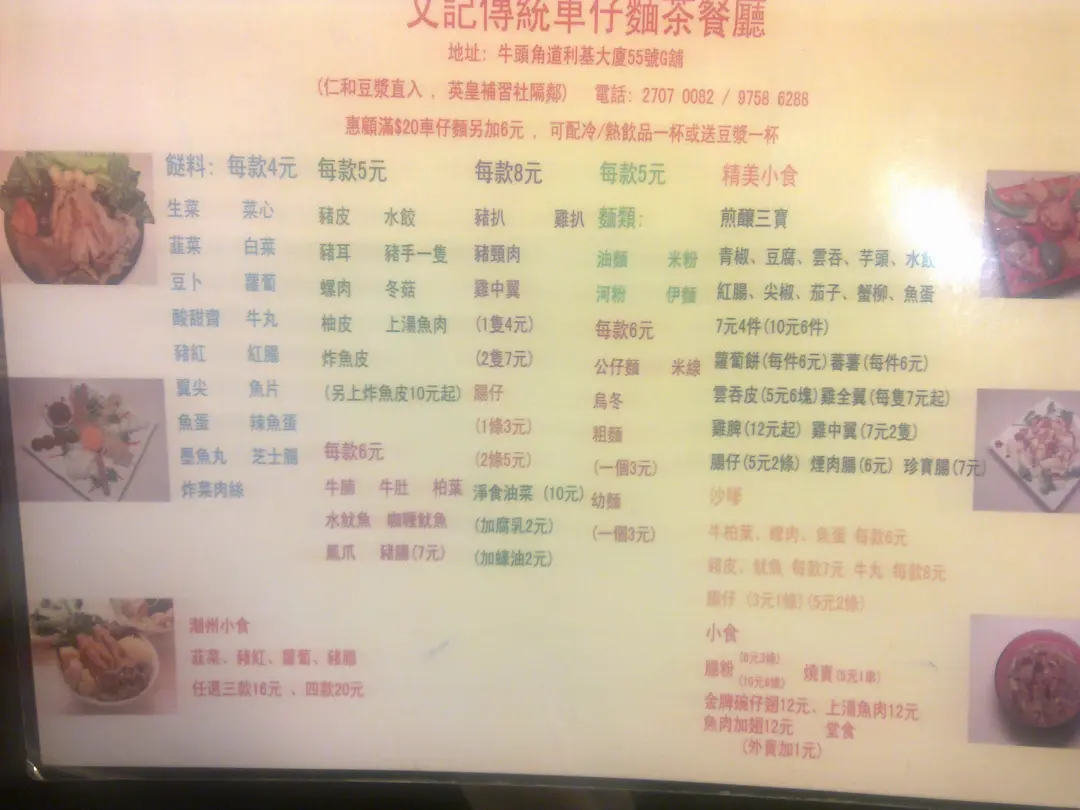 文記傳統車仔麵茶餐廳
地址: 牛頭角道利基大廈55號G舖
(仁和豆漿直入 , 英皇補習社隔鄰) 電話: 2707 0082 / 9758 6288
惠顧滿$20車仔麵另加6元 , 可配冷/熱飲品一杯或送豆漿一杯
餸料: 每款4元
生菜 菜心
韮菜 白菜
豆卜 蘿蔔
酸甜齋 牛丸
豬紅 紅腸
翼尖 魚片
魚蛋 辣魚蛋
墨魚丸 芝士腸
炸菜肉絲
每款5元
豬皮 水餃
豬耳 豬手一隻
螺肉 冬菇
柚皮 上湯魚肉
炸魚皮
(另上炸魚皮10元起)
每款6元
牛腩 牛肚 柏葉
水魷魚 咖喱魷魚
鳳爪 豬腸(7元)
每款8元
豬扒 雞扒
豬頸肉
雞中翼
(1隻4元)
(2隻7元)
腸仔
(1條3元)
(2條5元)
淨食油菜 (10元)
(加腐乳2元)
(加蠔油2元)
每款5元
麵類:
油麵 米粉
河粉 伊麵
每款6元
公仔麵 米線
烏冬
粗麵
(一個3元)
幼麵
(一個3元)
精美小食
煎釀三寶
青椒、豆腐、雲吞、芋頭、水餃
紅腸、尖椒、茄子、蟹柳、魚蛋
7元4件(10元6件)
蘿蔔餅(每件6元)蕃薯(每件6元)
雲吞皮(5元6塊)雞全翼(每隻7元起)
雞脾(12元起) 雞中翼(7元2隻)
腸仔(5元2條) 煙肉腸(6元) 珍寶腸(7元)
沙嗲
牛柏葉、螺肉、魚蛋 每款6元
豬皮、魷魚 每款7元 牛丸 每款8元
腸仔 (3元1條)(5元2條)
小食
腸粉 燒賣(5元1串)
金牌碗仔翅12元、上湯魚肉12元
魚肉加翅12元 堂食
(外賣加1元)
潮州小食
韮菜、豬紅、蘿蔔、豬腸
任選三款16元 、四款20元